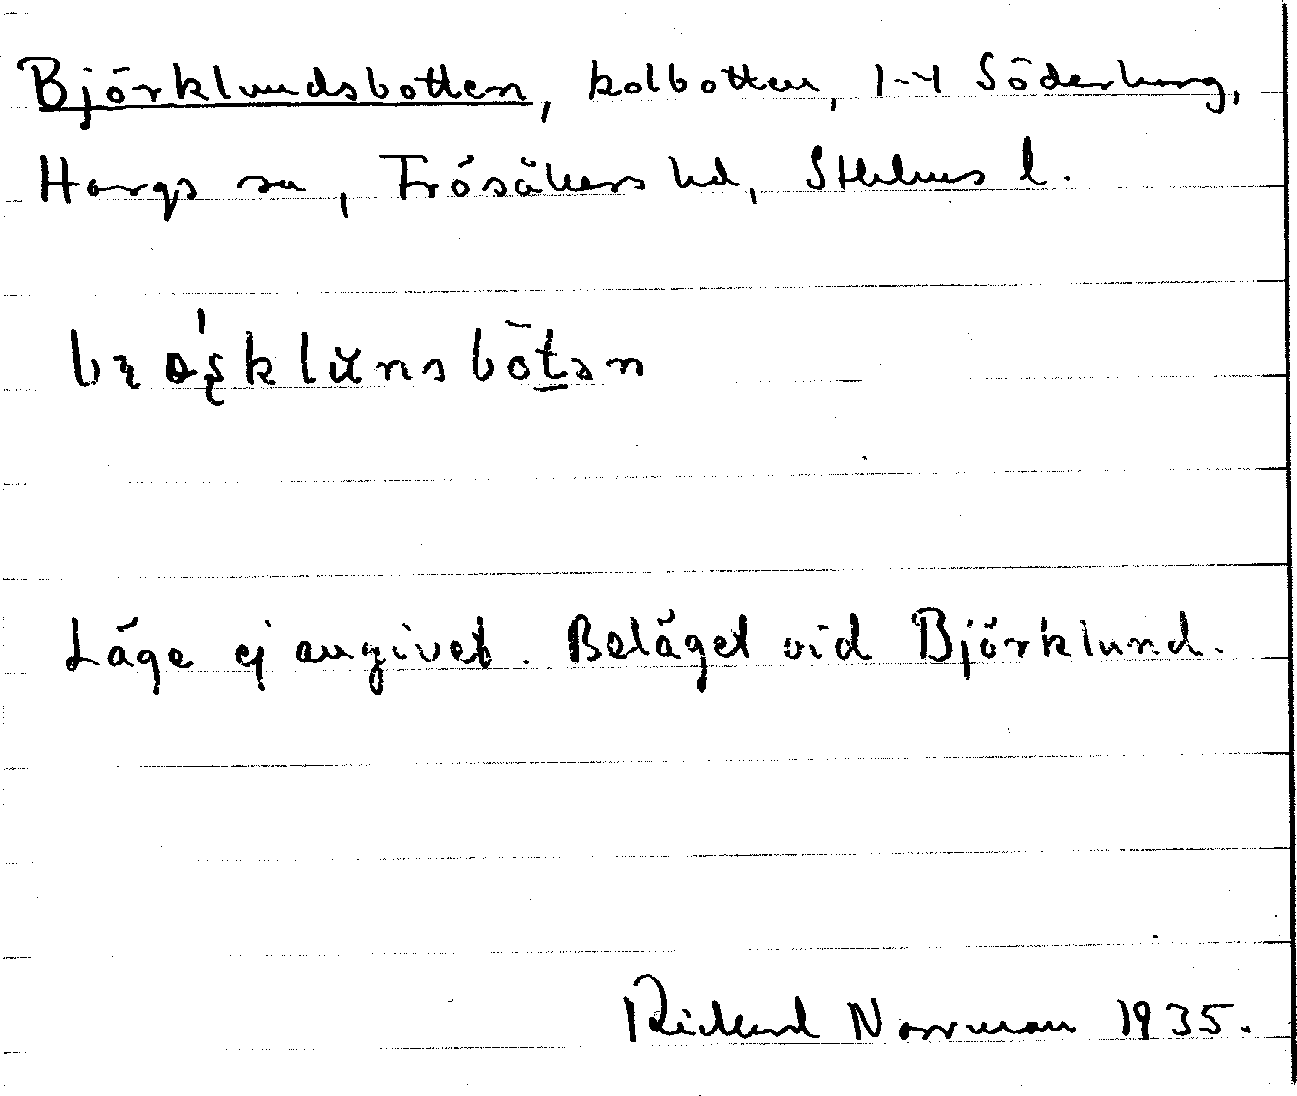 Björklundsbotten, kolbotten, 1-4 Söderburg,
Hargs sn, Frösåkers hd, Sthlms l.
Läge ej angivet. Beläget vid Björklund.
Rickard Norrman 1935.